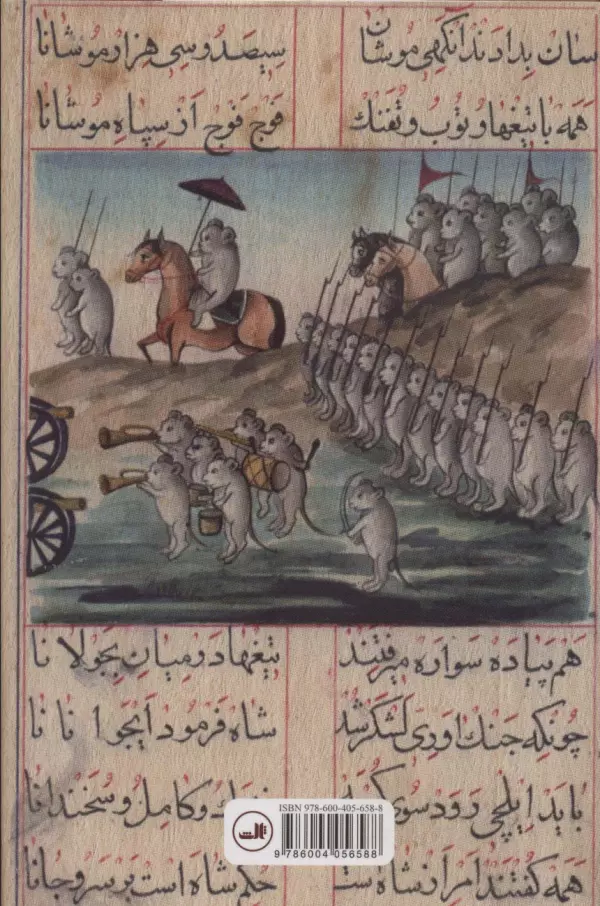 سان بدادند انکهی موشان سیصد و سی هزار موشانا
همه با تیغها و توپ و تفنک فوج فوج از سپاه موشانا
هم پیاده سواره میرفتند تیغها در میان بجولانا
چونکه جنک اوری لشکر شد شاه فرمود ایجوانانا
باید ایلچی رود سوی ک و کامل و سخندانا
همه کفتند امر از شاه است حکم شاه است بر سر و جانا
ISBN 978-600-405-658-8
ثالث
9 786004 056588